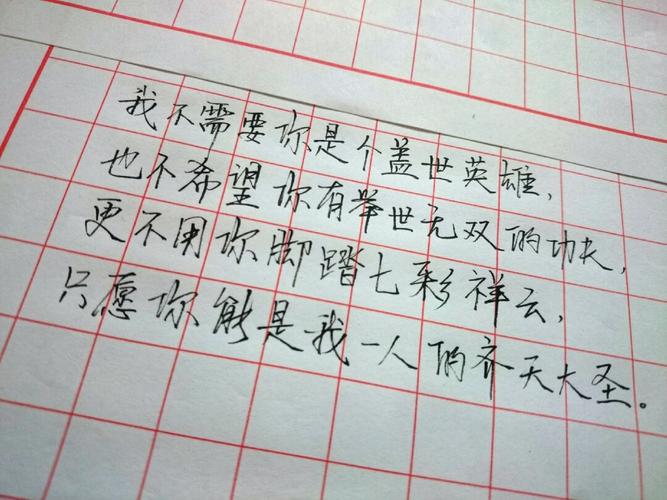 我不需要你是个盖世英雄，
也不希望你有举世无双的功夫，
更不用你脚踏七彩祥云，
只愿你能是我一人的齐天大圣。